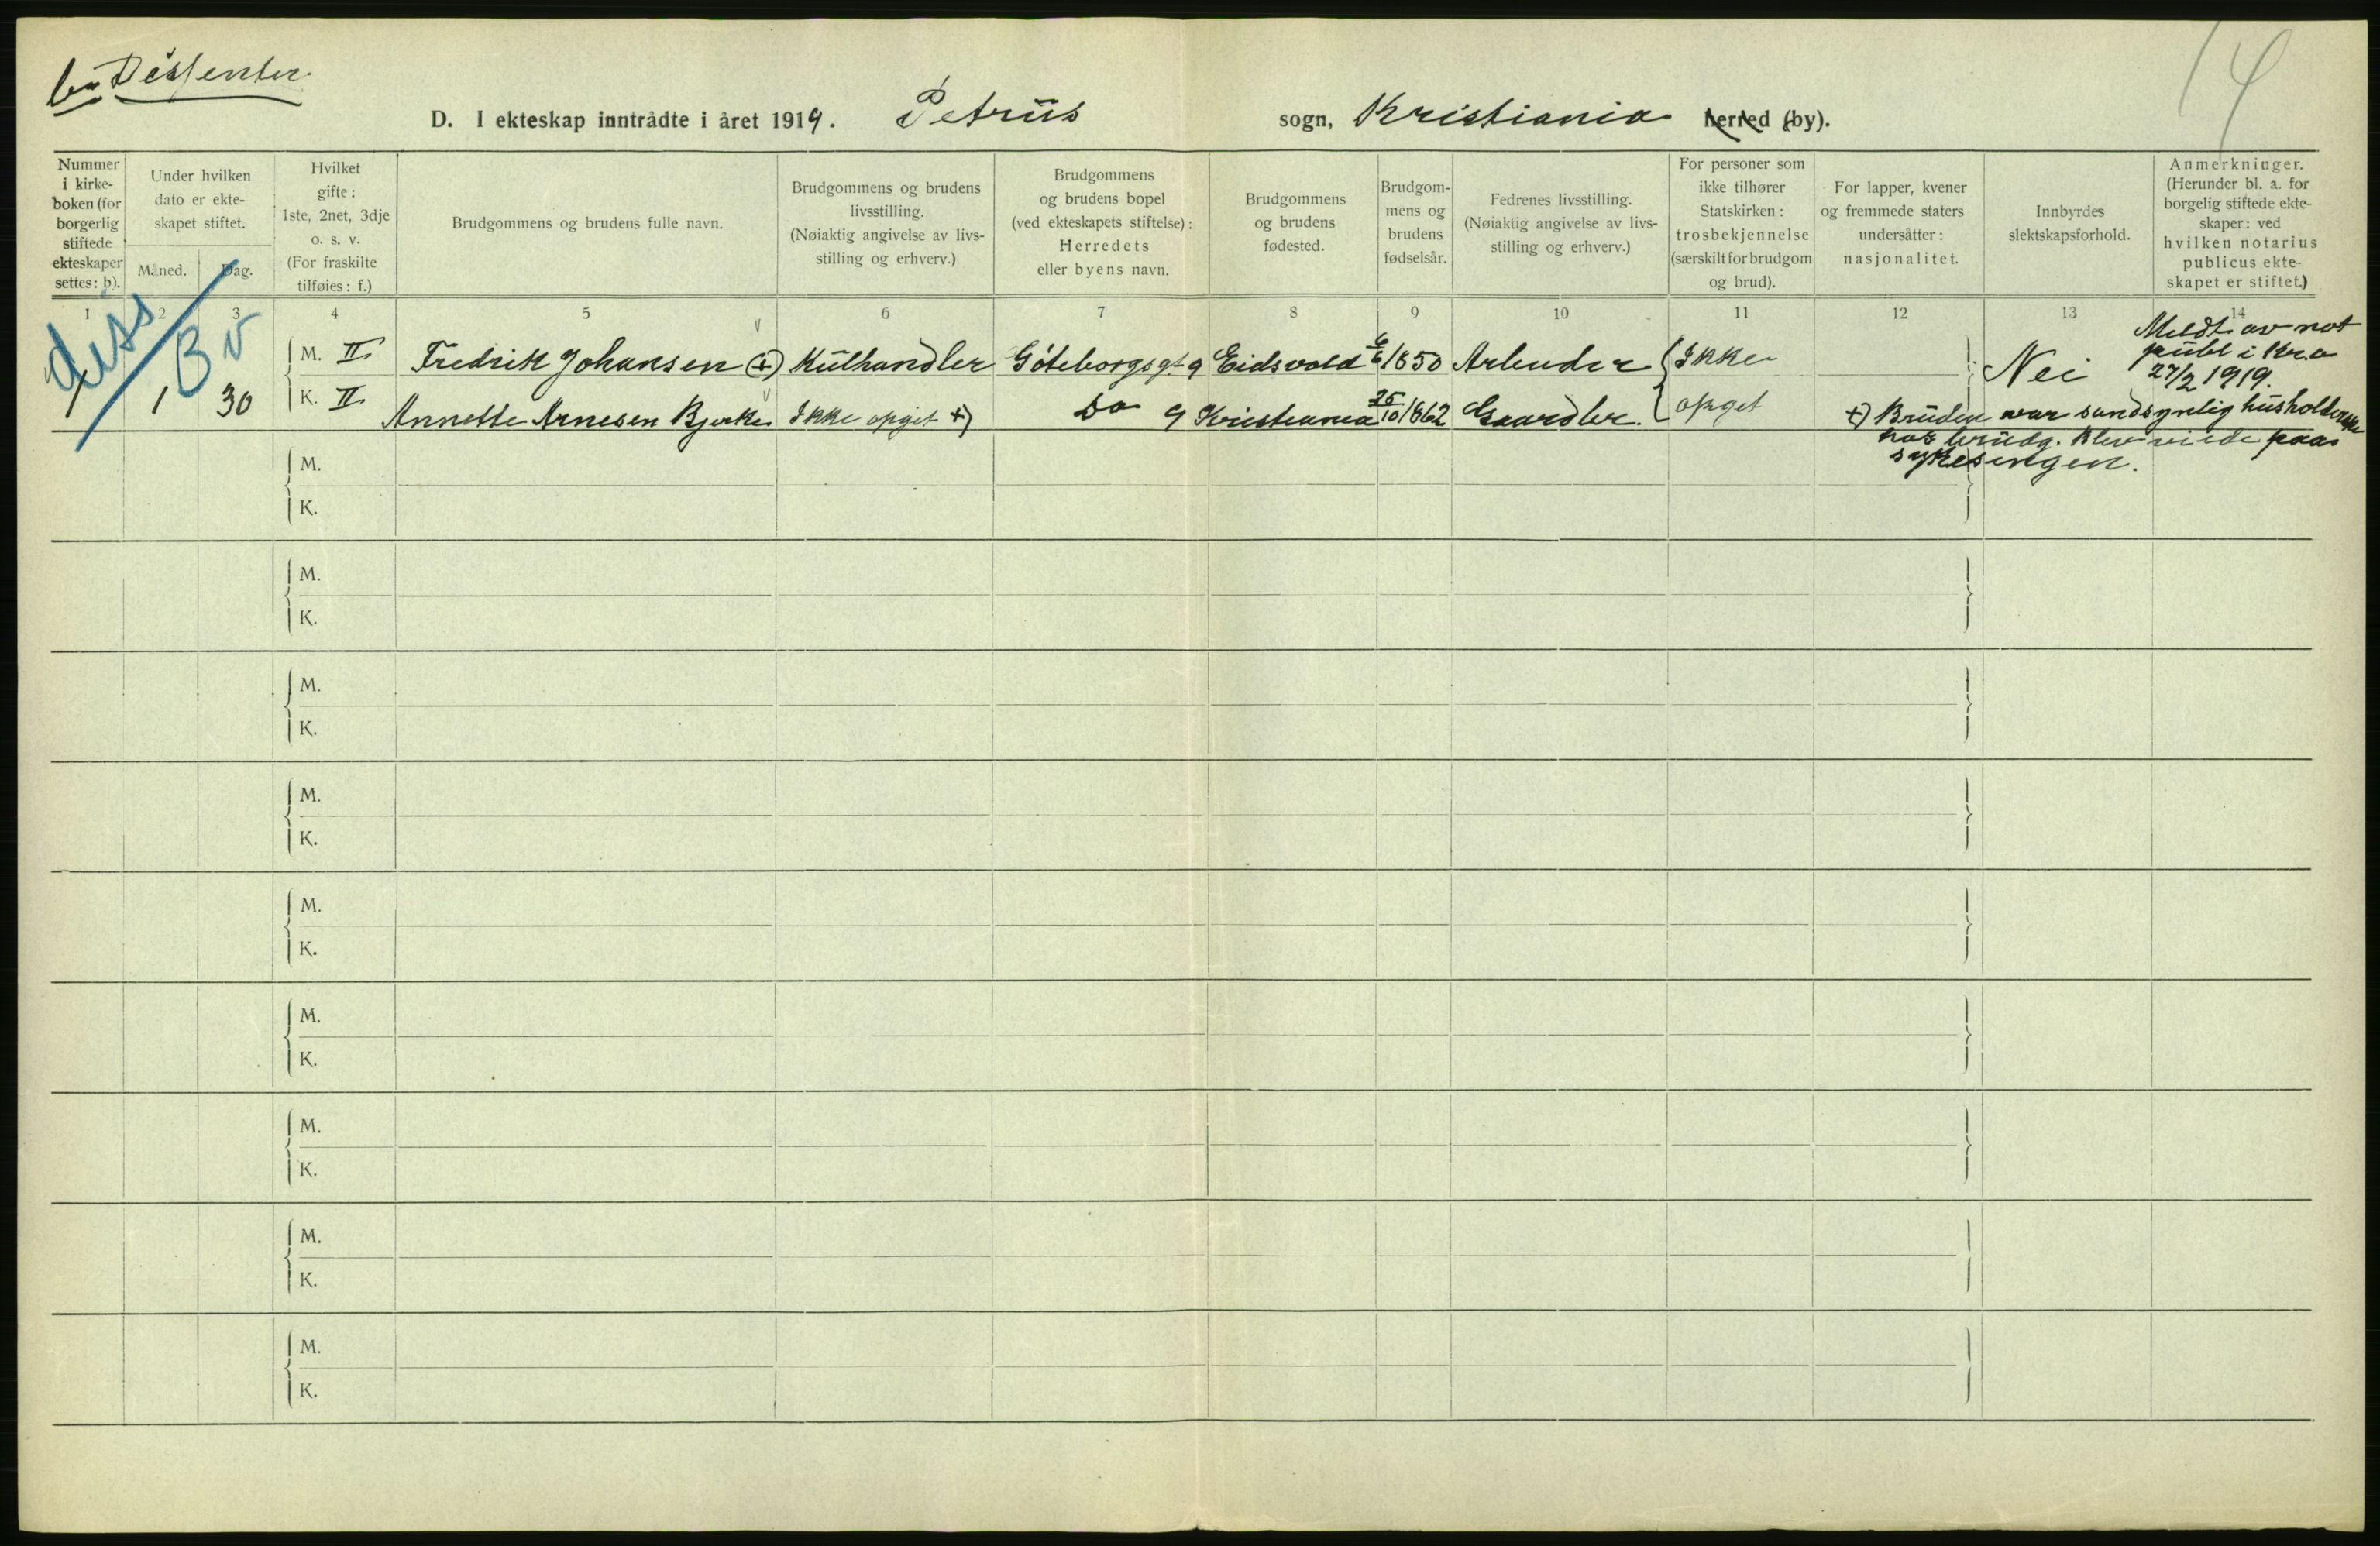 Dissenter
14
D. I ekteskap inntrådte i året 1919. Petrus sogn, Kristiania herred (by).
Nummer i kirke- boken (for borgerlig stiftede ekteskaper settes: b).
Under hvilken dato er ekte- skapet stiftet.
Måned. Dag.
Hvilket gifte: 1ste, 2net, 3dje o. s. v. (For fraskilte tilføies: f.)
Brudgommens og brudens fulle navn.
Brudgommens og brudens livsstilling. (Nøiaktig angivelse av livs- stilling og erhverv.)
Brudgommens og brudens bopel (ved ekteskapets stiftelse): Herredets eller byens navn.
Brudgommens og brudens fødested.
Brudgom- mens og brudens fødselsår.
Fedrenes livsstilling. (Nøiaktig angivelse av livs- stilling og erhverv.)
For personer som ikke tilhører Statskirken: trosbekjennelse (særskilt for brudgom og brud).
For lapper, kvener og fremmede staters undersåtter: nasjonalitet.
Innbyrdes slektskapsforhold.
Anmerkninger. (Herunder bl. a. for borgelig stiftede ekte- skaper: ved hvilken notarius publicus ekte- skapet er stiftet.)
1 2 3 4 5 6 7 8 9 10 11 12 13 14
diss
B v
M. II Fredrik Johansen (+) Kulhandler Göteborgsgt. 9 Eidsvold 6/6 1850 Arbeider Ikke Nei Meldt av not publ i Kr.a 27/2 1919.
1 1 30 K. II Annette Arnesen Bjerke Ikke opgit +) Do 9 Kristiania 25/10 1862 Gaardbr. opget +) Bruden var sandsynlig husholderske
hos brudg. Blev viede paa
sykesengen.
M.
K.
M.
K.
M.
K.
M.
K.
M.
K.
M.
K.
M.
K.
M.
K.
M.
K.